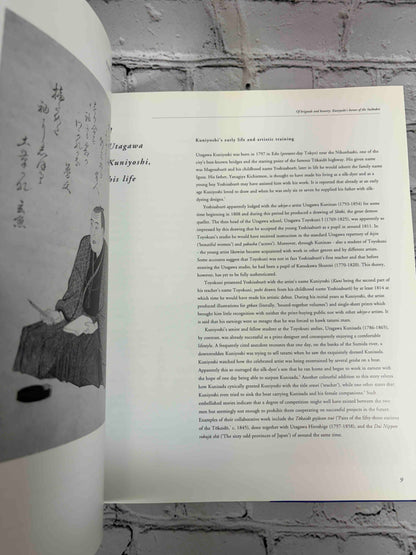 Of brigands and bravery: Kuniyoshi's heroes of the Suikoden
Utagawa
Kuniyoshi,
his life
Kuniyoshi's early life and artistic training
Utagawa Kuniyoshi was born in 1797 in Edo (present-day Tokyo) near the Nihonbashi, one of the
city's best-known bridges and the starting point of the famous Tōkaidō highway. His given name
was Magosaburō and his childhood name Yoshisaburō; later in life he would inherit the family name
Igusa. His father, Yanagiya Kichiemon, is thought to have made his living as a silk-dyer and as a
young boy Yoshisaburō may have assisted him with his work. It is reported that already at an early
age Kuniyoshi loved to draw and when he was only six or seven he supplied his father with silk-
dyeing designs.
Yoshisaburō apparently lodged with the ukiyo-e artist Utagawa Kuninao (1793-1854) for some
time beginning in 1808 and during this period he produced a drawing of Shōki, the great demon
queller. The then head of the Utagawa school, Utagawa Toyokuni I (1769-1825), was apparently so
impressed by this drawing that he accepted the young Yoshisaburō as a pupil around 1811. In
Toyokuni's studio he would have received instruction in the standard Utagawa repertory of bijin
('beautiful women') and yakusha ('actors'). Moreover, through Kuninao - also a student of Toyokuni
- the young artist likewise became acquainted with work in other genres and by different artists.
Some accounts suggest that Toyokuni was not in fact Yoshisaburō's first teacher and that before
entering the Utagawa studio, he had been a pupil of Katsukawa Shuntei (1770-1820). This theory,
however, has yet to be fully authenticated.
Toyokuni presented Yoshisaburō with the artist's name Kuniyoshi (Kuni being the second part of
his teacher's name Toyokuni; yoshi drawn from his childhood name Yoshisaburō) by at least 1814 at
which time he would have made his artistic debut. During his initial years as Kuniyoshi, the artist
produced illustrations for gōkan (literally, 'bound-together volumes') and single-sheet prints which
brought him little recognition with neither the print-buying public nor with other ukiyo-e artists. It
is said that his earnings were so meagre that he was forced to hawk tatami mats.
Kuniyoshi's senior and fellow student at the Toyokuni atelier, Utagawa Kunisada (1786-1865),
by contrast, was already successful as a print-designer and consequently enjoying a comfortable
lifestyle. A frequently cited anecdote recounts that one day, on the banks of the Sumida river, a
downtrodden Kuniyoshi was trying to sell tatami when he saw the exquisitely dressed Kunisada.
Kuniyoshi watched how the celebrated artist was being entertained by several geisha on a boat.
Apparently this so outraged the silk-dyer's son that he ran home and began to work in earnest with
the hope of one day being able to surpass Kunisada.
embellished stories indicate that a degree of competition might have existed between the two
men but seemingly not enough to prohibit them cooperating on successful projects in the future.
Examples of their collaborative work include the Tōkaidō gojūsan tsui ('Pairs of the fifty-three stations
of the Tōkaidō', c. 1845), done together with Utagawa Hiroshige (1797-1858), and the Dai Nippon
rokujū shū ('The sixty odd provinces of Japan') of around the same time.
9